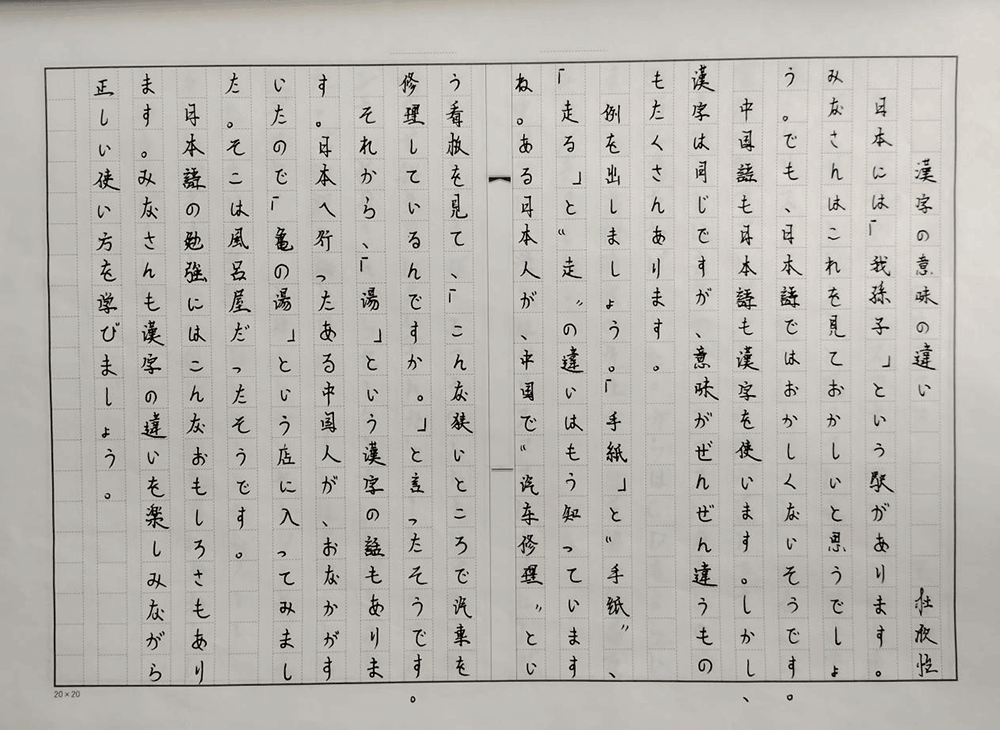 漢字の意味の違い
日本には「我孫子」という駅があります。
みなさんはこれを見ておかしいと思うでしょ
う。でも、日本語ではおかしくないそうです。
中国語も日本語も漢字を使います。しかし、
漢字は同じですが、意味がぜんぜん違うもの
もたくさんあります。
例を出しましょう。「手紙」と“手纸”、
「走る」と“走”の違いはもう知っています
ね。ある日本人が、中国で“汽车修理”とい
う看板を見て、「こんな狭いところで汽車を
修理しているんですか。」と言ったそうです。
それから、「湯」という漢字の話もありま
す。日本へ行ったある中国人が、おなかがす
いたので「亀の湯」という店に入ってみまし
た。そこは風呂屋だったそうです。
日本語の勉強にはこんなおもしろさもあり
ます。みなさんも漢字の違いを楽しみながら
正しい使い方を学びましょう。
20×20